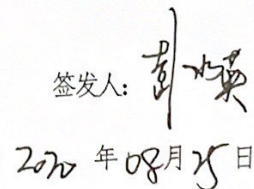 签发人：彭水英
2020 年 08 月 25 日